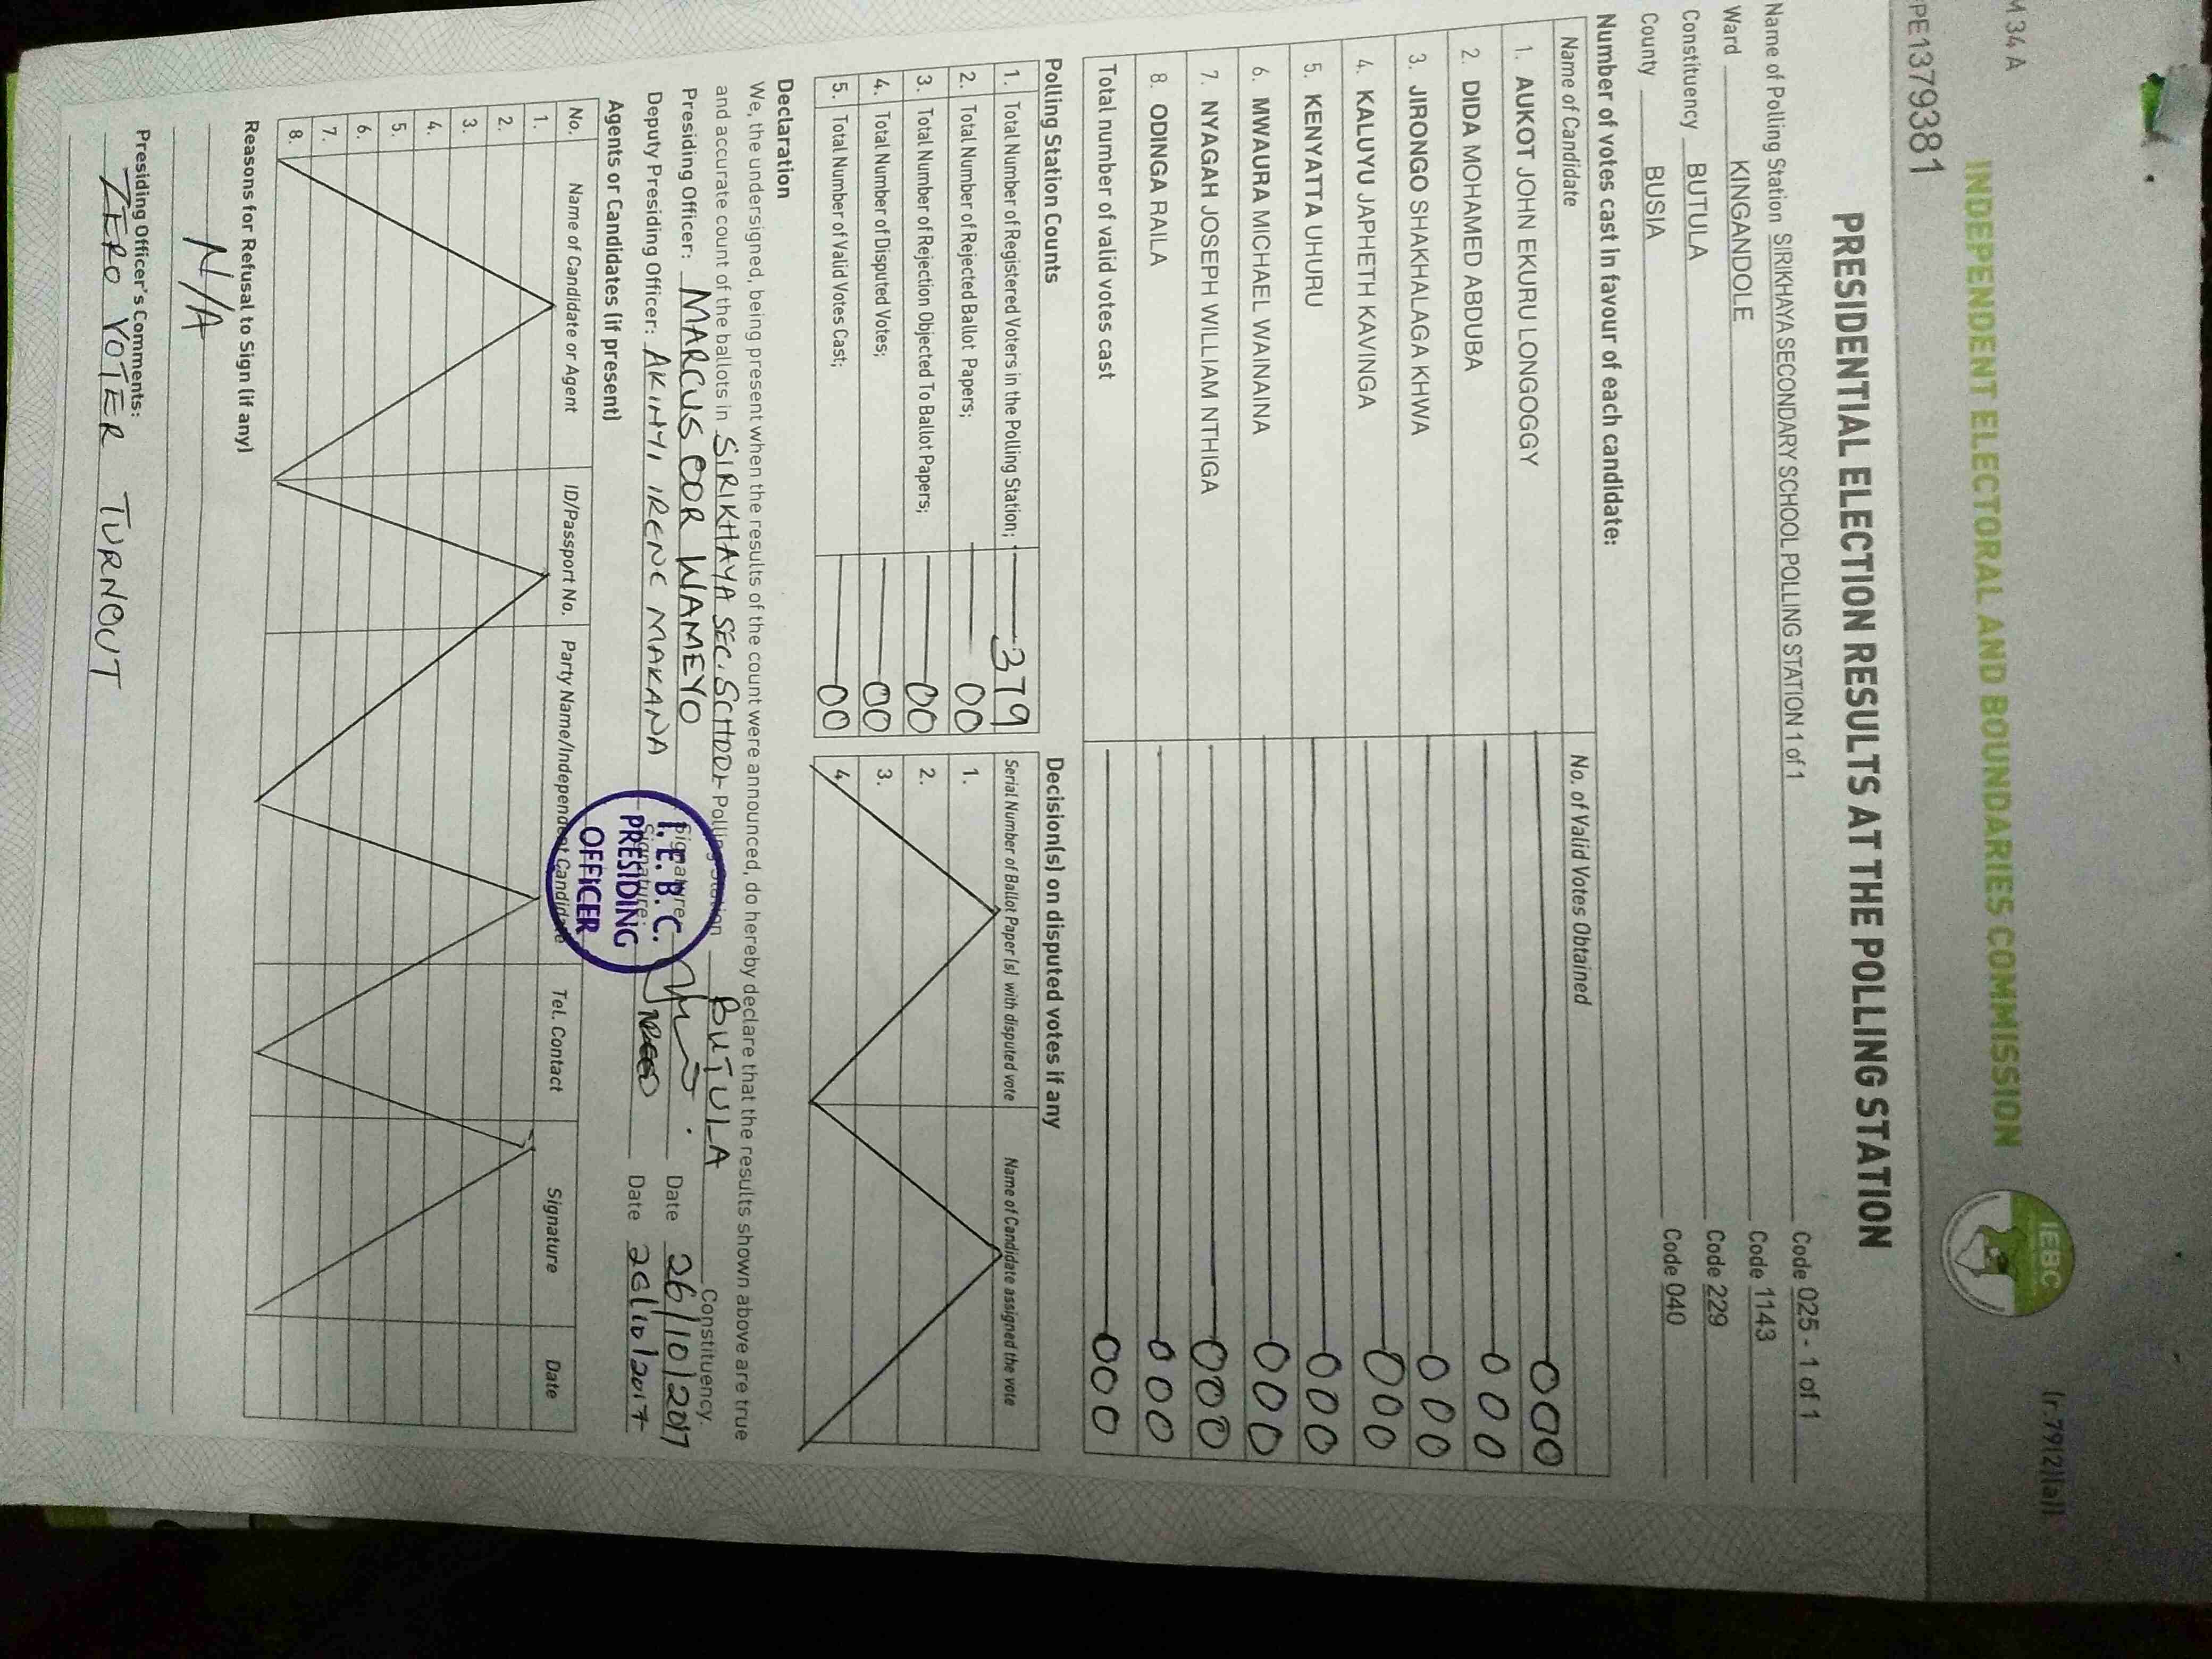 M 34 A
(r.79(2)(a))
INDEPENDENT ELECTORAL AND BOUNDARIES COMMISSION
IEBC
PE1379381
PRESIDENTIAL ELECTION RESULTS AT THE POLLING STATION
Name of Polling Station SIRIKHAYA SECONDARY SCHOOL POLLING STATION 1 of 1 Code 025 - 1 of 1
Ward KINGANDOLE Code 1143
Constituency BUTULA Code 229
County BUSIA Code 040
Number of votes cast in favour of each candidate:
Name of Candidate No. of Valid Votes Obtained
1. AUKOT JOHN EKURU LONGOGGY 000
2. DIDA MOHAMED ABDUBA 000
3. JIRONGO SHAKHALAGA KHWA 000
4. KALUYU JAPHETH KAVINGA 000
5. KENYATTA UHURU 000
6. MWAURA MICHAEL WAINAINA 000
7. NYAGAH JOSEPH WILLIAM NTHIGA 000
8. ODINGA RAILA 000
Total number of valid votes cast 000
Polling Station Counts
1. Total Number of Registered Voters in the Polling Station; 379
2. Total Number of Rejected Ballot Papers; 00
3. Total Number of Rejection Objected To Ballot Papers; 00
4. Total Number of Disputed Votes; 00
5. Total Number of Valid Votes Cast; 00
Decision(s) on disputed votes if any
Serial Number of Ballot Paper (s) with disputed vote Name of Candidate assigned the vote
1.
2.
3.
4.
Declaration
We, the undersigned, being present when the results of the count were announced, do hereby declare that the results shown above are true
and accurate count of the ballots in SIRIKHAYA SEC. SCHOOL Polling Station BUTULA Constituency.
Presiding Officer: MARCUS OOR WAMEYO Signature: Date 26/10/2017
Deputy Presiding Officer: AKINYI IRENE MAKANA Signature: Date 26/10/2017
I.E.B.C.
PRESIDING
OFFICER
Agents or Candidates (if present)
No. Name of Candidate or Agent ID/Passport No. Party Name/Independent Candidate Tel. Contact Signature Date
1.
2.
3.
4.
5.
6.
7.
8.
Reasons for Refusal to Sign (if any)
N/A
Presiding Officer's Comments:
ZERO VOTER TURNOUT